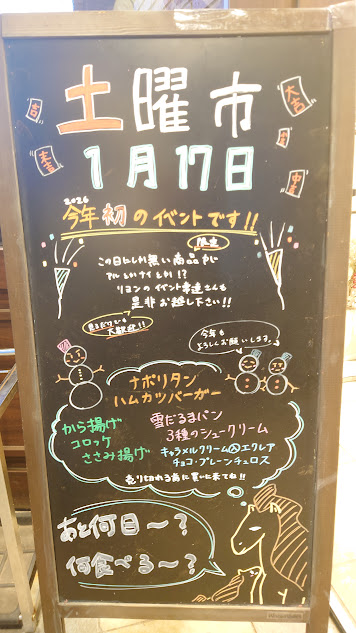 土曜市
大吉
吉
末吉
中吉
1月17日
2026
今年初のイベントです!!
限定
この日にしか無い商品が
アルしかナイしか!?
リヨンのイベント幸連さんも
是非お越し下さい!!
見るだけでも
大歓迎!!
今年も
よろしくお願いします。
ナポリタン
ハムカツバーガー
から揚げ
コロッケ
ささみ揚げ
雪だるまパン
3種のシュークリーム
キャラメルクリーム入エクレア
チョコ・プレーンチュロス
売り切れる前に買いに来てね!!
あと何日〜?
何食べる〜?